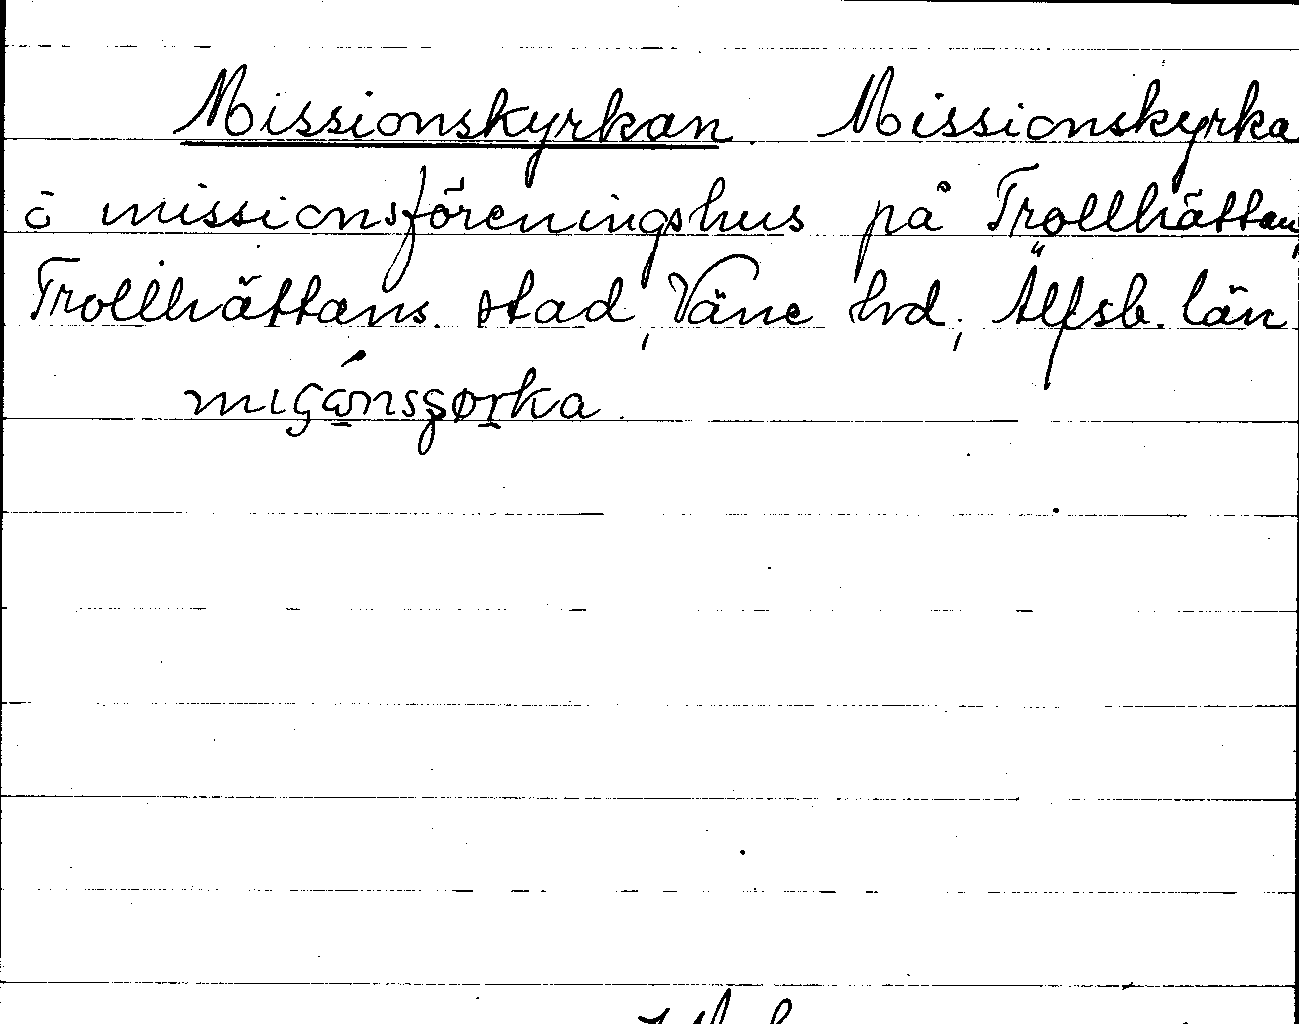 Missionskyrkan. Missionskyrka
ō missionsföreningshus på Trollhättan,
Trollhättans stad, Väne hd, Älfsb. län